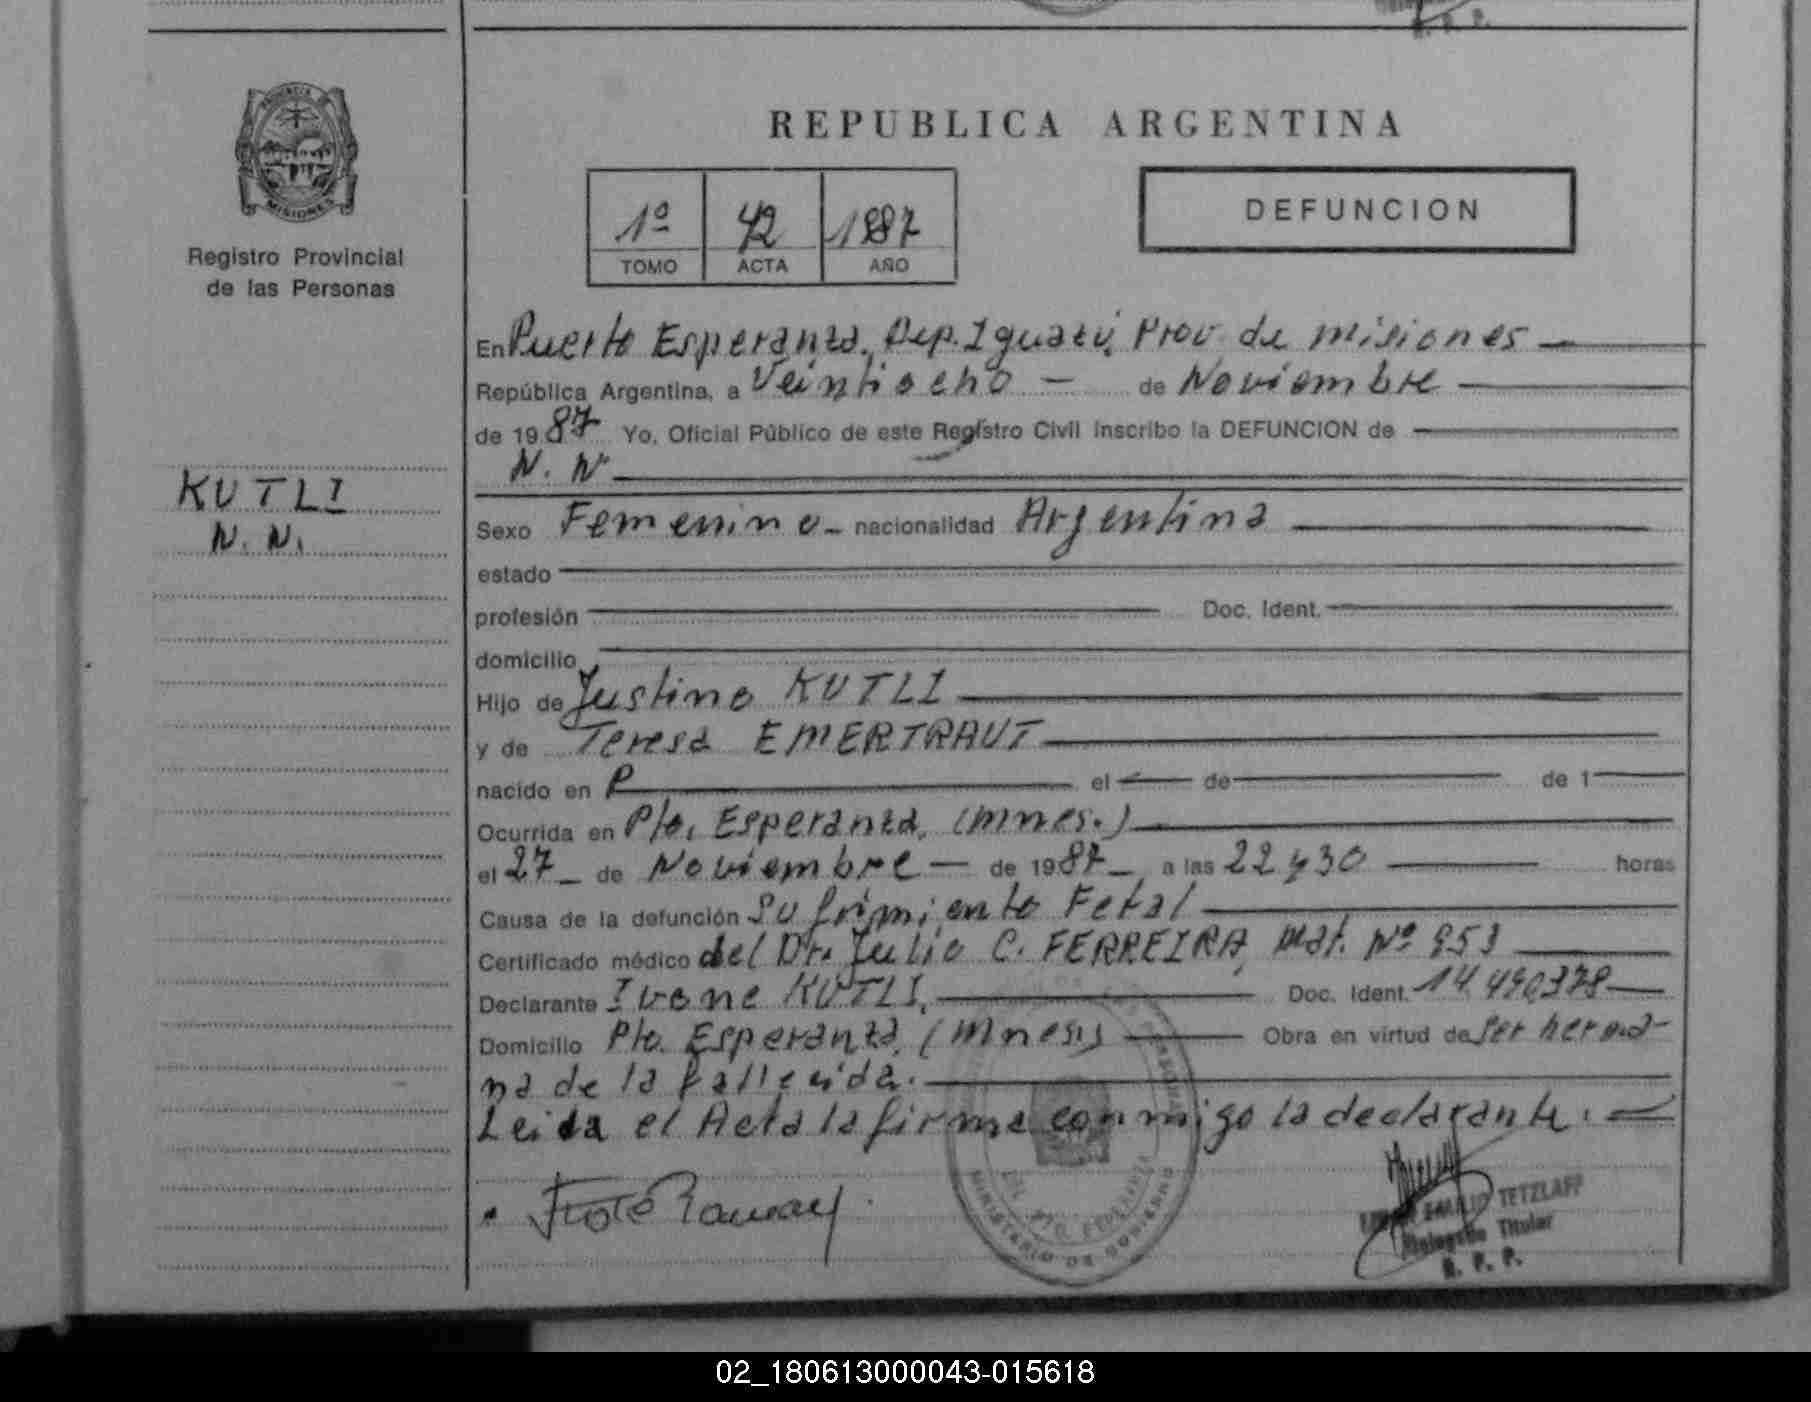 PROVINCIA DE
MISIONES
Registro Provincial
de las Personas
KUTLI
N. N.
REPUBLICA ARGENTINA
1º 42 1987
TOMO ACTA AÑO
DEFUNCION
En Puerto Esperanza, Dep. Iguazú, Prov. de Misiones
República Argentina, a Veintiocho de Noviembre
de 1987 Yo, Oficial Público de este Registro Civil Inscribo la DEFUNCION de
N. N
Sexo Femenino nacionalidad Argentina
estado
profesión Doc. Ident.
domicilio
Hijo de Justino KUTLI
y de Teresa EMERTRAUT
nacido en P el de de 1
Ocurrida en Pto. Esperanza, (Mnes.)
el 27 de Noviembre de 1987 a las 22 y 30 horas
Causa de la defunción Sufrimiento Fetal
Certificado médico del Dr. Julio C. FERREIRA, Mat. Nº 953
Declarante Ivone KUTLI, Doc. Ident. 14.490.378
Domicilio Pto. Esperanza, (Mnes.) Obra en virtud de ser herma-
na de la fallecida.
Leida el Acta la firma conmigo la declarante.
MINISTERIO DE GOBIERNO
EMILIO TETZLAFF
Delegado Titular
R. P. P.
02_180613000043-015618